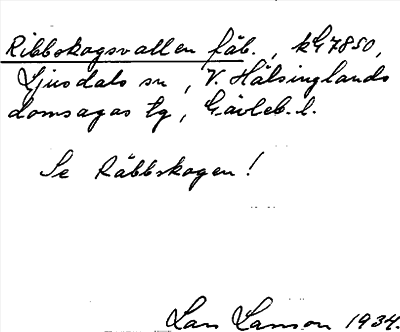 Ribbskogsvallen fäb., kG7850,
Ljusdals sn, V. Hälsinglands
domsagas tg, Gävleb. l.
Se Räbbskogen!
Lars Larsson 1934.